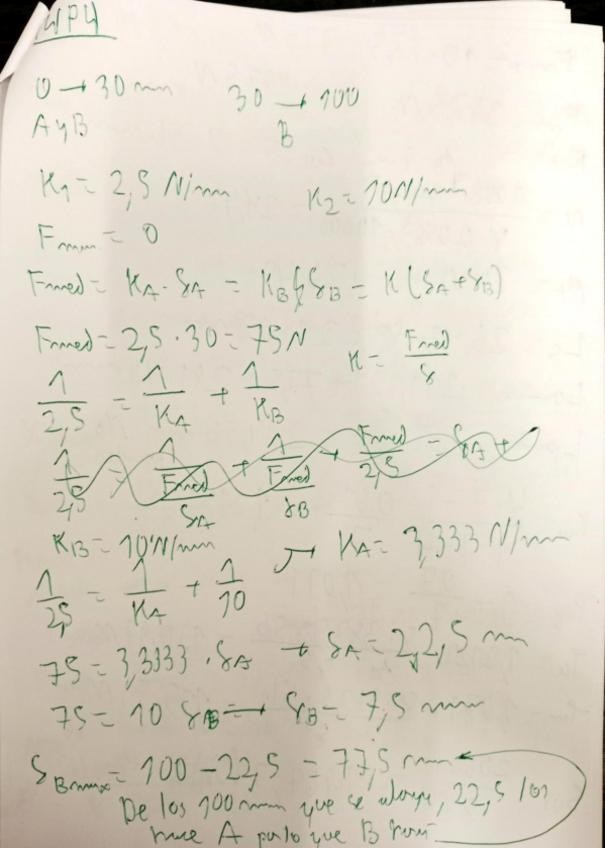 WPU
0 → 30 mm 30 → 100
A y B B
K1 = 2,5 N/mm K2 = 10 N/mm
Fmin = 0
Fmed = KA · δA = KB · δB = K (δA + δB)
Fmed = 2,5 · 30 = 75 N K = Fmed/δ
1/2,5 = 1/KA + 1/KB
1/2,5 = 1/(Fmed/δA) + 1/(Fmed/δB) → Fmed/2,5 = δA +
KB = 10 N/mm → KA = 3,333 N/mm
1/2,5 = 1/KA + 1/10
75 = 3,3333 · δA → δA = 22,5 mm
75 = 10 δB → δB = 7,5 mm
δBmax = 100 - 22,5 = 77,5 mm
De los 100 mm que se alarga, 22,5 los
hace A por lo que B hará